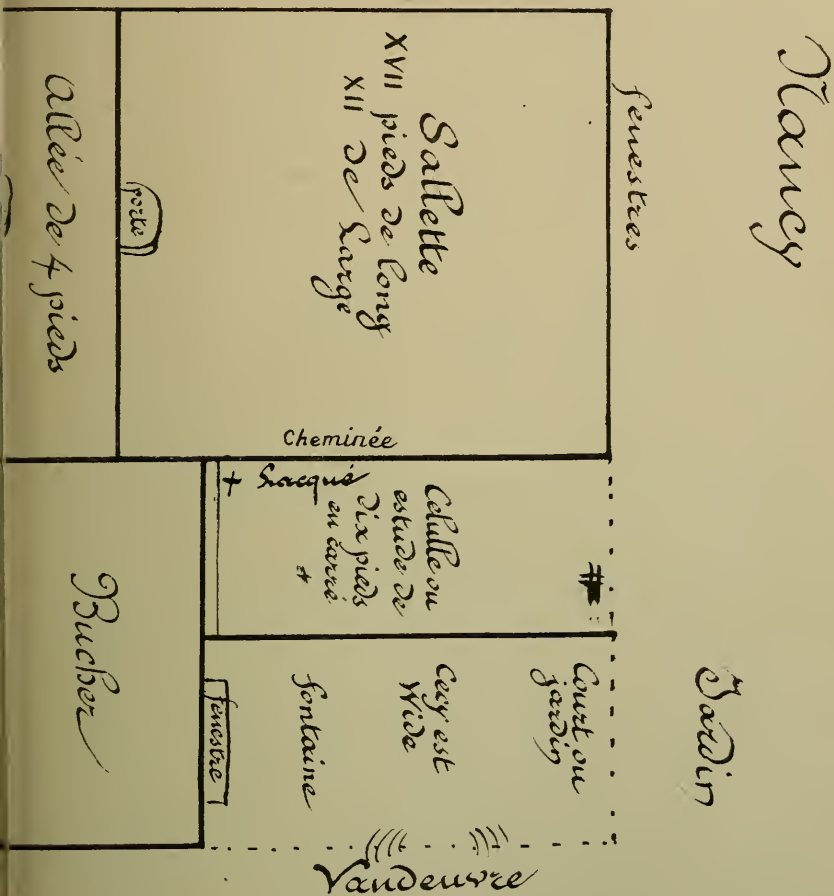 Nancy
fenestres
Jardin
Sallette
XVII pieds de long
XII de Large
porte
Allée de 4 pieds
Cheminée
+ Lacqué
Celulle ou
estude de
dix pieds
en carré
+
Court ou
jardin
Cecy est
Wide
fontaine
fenestre
Bucher
Vandeuvre